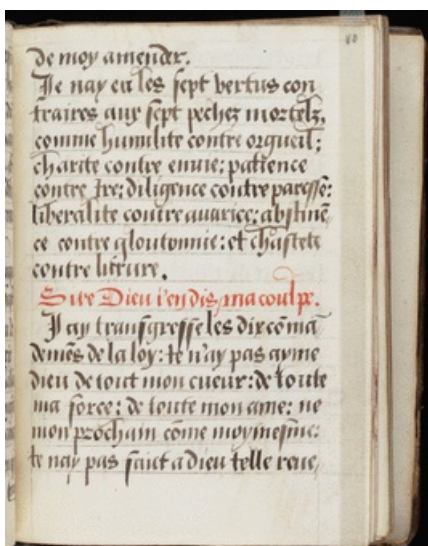 80
de moy amender.
Je nay eu les sept vertus con
traires aux sept pechez mortelz,
comme humilite contre orgueil;
charite contre enuie; patience
contre Ire; diligence cõtre paresse:
liberalite contre auarice; abstinẽ,
ce contre gloutonnie: et chastete
contre luxure.
Sire Dieu i'en dis, ma coulpe.
J'ay transgresse les dix cõmã
demẽs de la loy: Je n'ay pas ayme
dieu de tout mon cueur: de toute
ma force; de toute mon ame; ne
mon prochain cõme moymesme:
Je nay pas faict a Dieu telle reue,